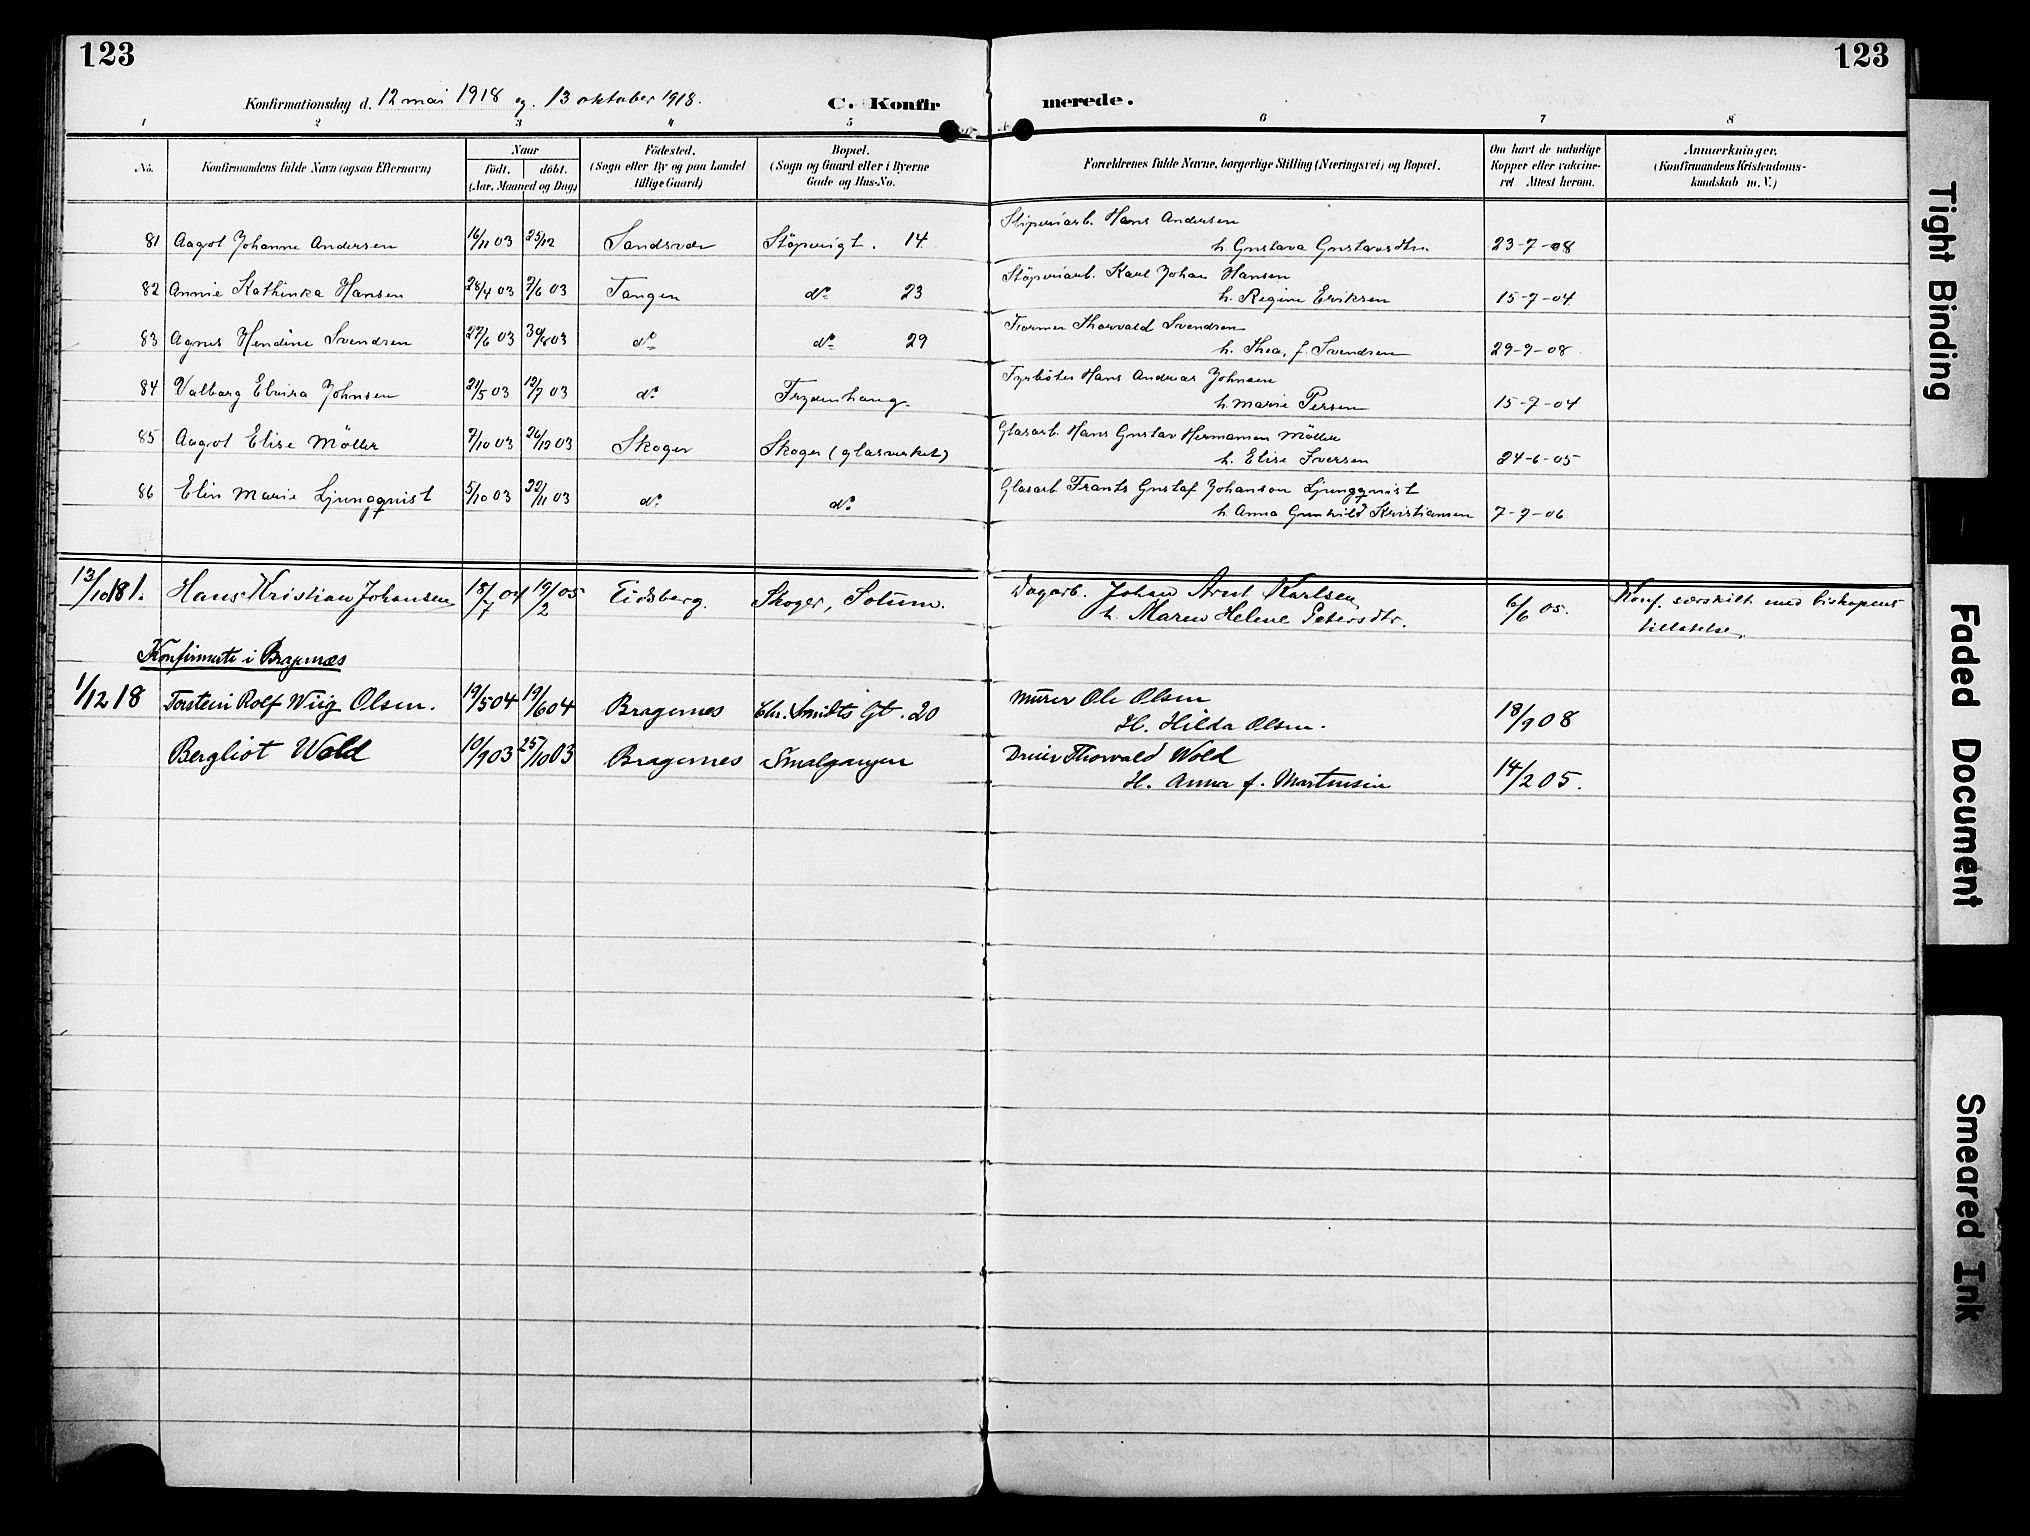 123
123
Konfirmationsdag d. 12 mai 1918 og. 13 oktober 1918.
C. Konfirmerede.
1 2 3 4 5 6 7 8
No.
Konfirmandens fulde Navn (ogsaa Efternavn)
Naar
født. døbt.
(Aar, Maaned og Dag)
Fødested.
(Sogn eller By og paa Landet
tillige Gaard)
Bopæl.
(Sogn og Gaard eller i Byerne
Gade og Hus-No.
Forældrenes fulde Navne, borgerlige Stilling (Næringsvei) og Bopæl.
Om havt de naturlige
Kopper eller vaccine-
ret Attest herom.
Anmærkninger.
(Konfirmandens Kristendoms-
kundskab m. V.)
81 Aagot Johanne Andersen 16/11 03 25/12 Sandsvær Støperigt. 14 Støperiarb. Hans Andersen
h. Gustava Gustavsdtr. 23-7-08
82 Annie Kathinka Hansen 28/4 03 7/6 03 Tangen do 23 Støperiarb. Karl Johan Hansen
h. Regine Eriksen 15-7-04
83 Agnes Hendine Svendsen 27/6 03 30/8 03 do do 29 Former Thorvald Svendsen
h. Thea, f. Svendsen 29-9-08
84 Valborg Elvira Johnsen 21/5 03 12/7 03 do Frydenhaug. Fyrbøter Hans Andreas Johnsen
h. Marie Persen 15-7-04
85 Aagot Elise Møller 7/10 03 26/12 03 Skoger Skoger (glasverket) Glasarb. Hans Gustav Hermansen Møller
h. Elise Iversen 24-6-05
86 Elin Marie Ljungqvist 5/10 03 22/11 03 do do Glasarb. Frants Gustaf Johanson Ljungqvist
h. Anna Gunhild Kristiansen 7-9-06
13/10 18 1. Hans Kristian Johansen 18/7 04 19/2 05 Eidsberg. Skoger, Solum. Dagarb. Johan Arnt Karlsen
h. Maren Helene Petersdtr. 6/6 05. Konf. særskilt med biskopens
tillatelse.
Konfirmerte i Bragernæs
1/12 18 Torstein Rolf Wiig Olsen. 19/5 04 19/6 04 Bragernes Chr. Smidts Gt. 20 Murer Ole Olsen
H. Hilda Olsen. 18/9 08
Bergliot Wold 10/9 03 25/10 03 Bragernes Smalgangen Dreier Thorvald Wold
H. Anna f. Martinsen 14/2 05.
Tight Binding
Faded Document
Smeared Ink